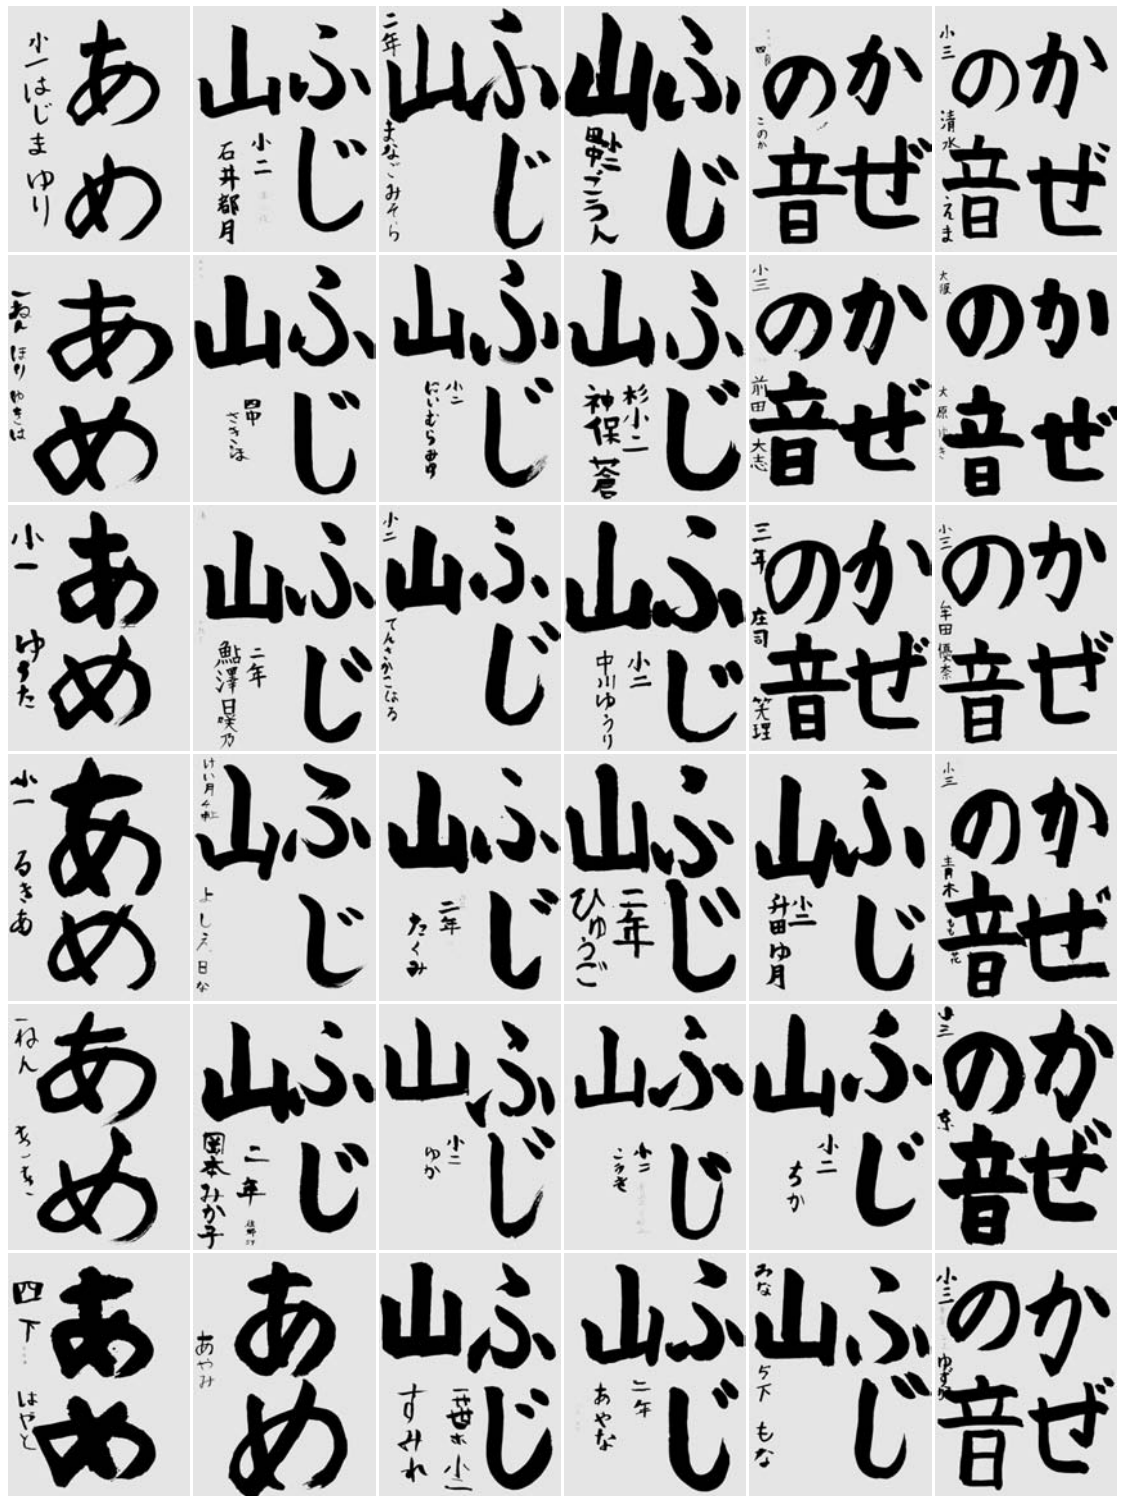 あめ
小一はじまゆり
ふじ
山
小二
石井都月
ふじ
山
二年
まなごみそら
ふじ
山
小二
かぜ
の音
このか
かぜ
の音
小三
清水えま
あめ
一ねん ほり ゆきは
ふじ
山
田中
さきほ
ふじ
山
小二
にいむら
ふじ
山
杉小二
神保 蒼
かぜ
の音
小三
前田大志
かぜ
の音
大原ゆき
あめ
小一 ゆうた
ふじ
山
二年
鮎澤日咲乃
ふじ
山
小二
ふじ
山
小二
中川ゆうり
かぜ
の音
三年 庄司 笑理
かぜ
の音
小三
牟田優奈
あめ
小一 るきあ
ふじ
山
よしえ日な
ふじ
山
二年
たくみ
ふじ
山
二年
ひゅうご
ふじ
山
小二
升田ゆ月
かぜ
の音
小三
青木もも花
あめ
一ねん
ふじ
山
二年
岡本みか子
ふじ
山
小二
ゆか
ふじ
山
小二
ふじ
山
小二
ちか
かぜ
の音
あめ
四下 はやと
あめ
あやみ
ふじ
山
小二
すみれ
ふじ
山
二年
あやな
ふじ
山
もな
かぜ
の音
小三